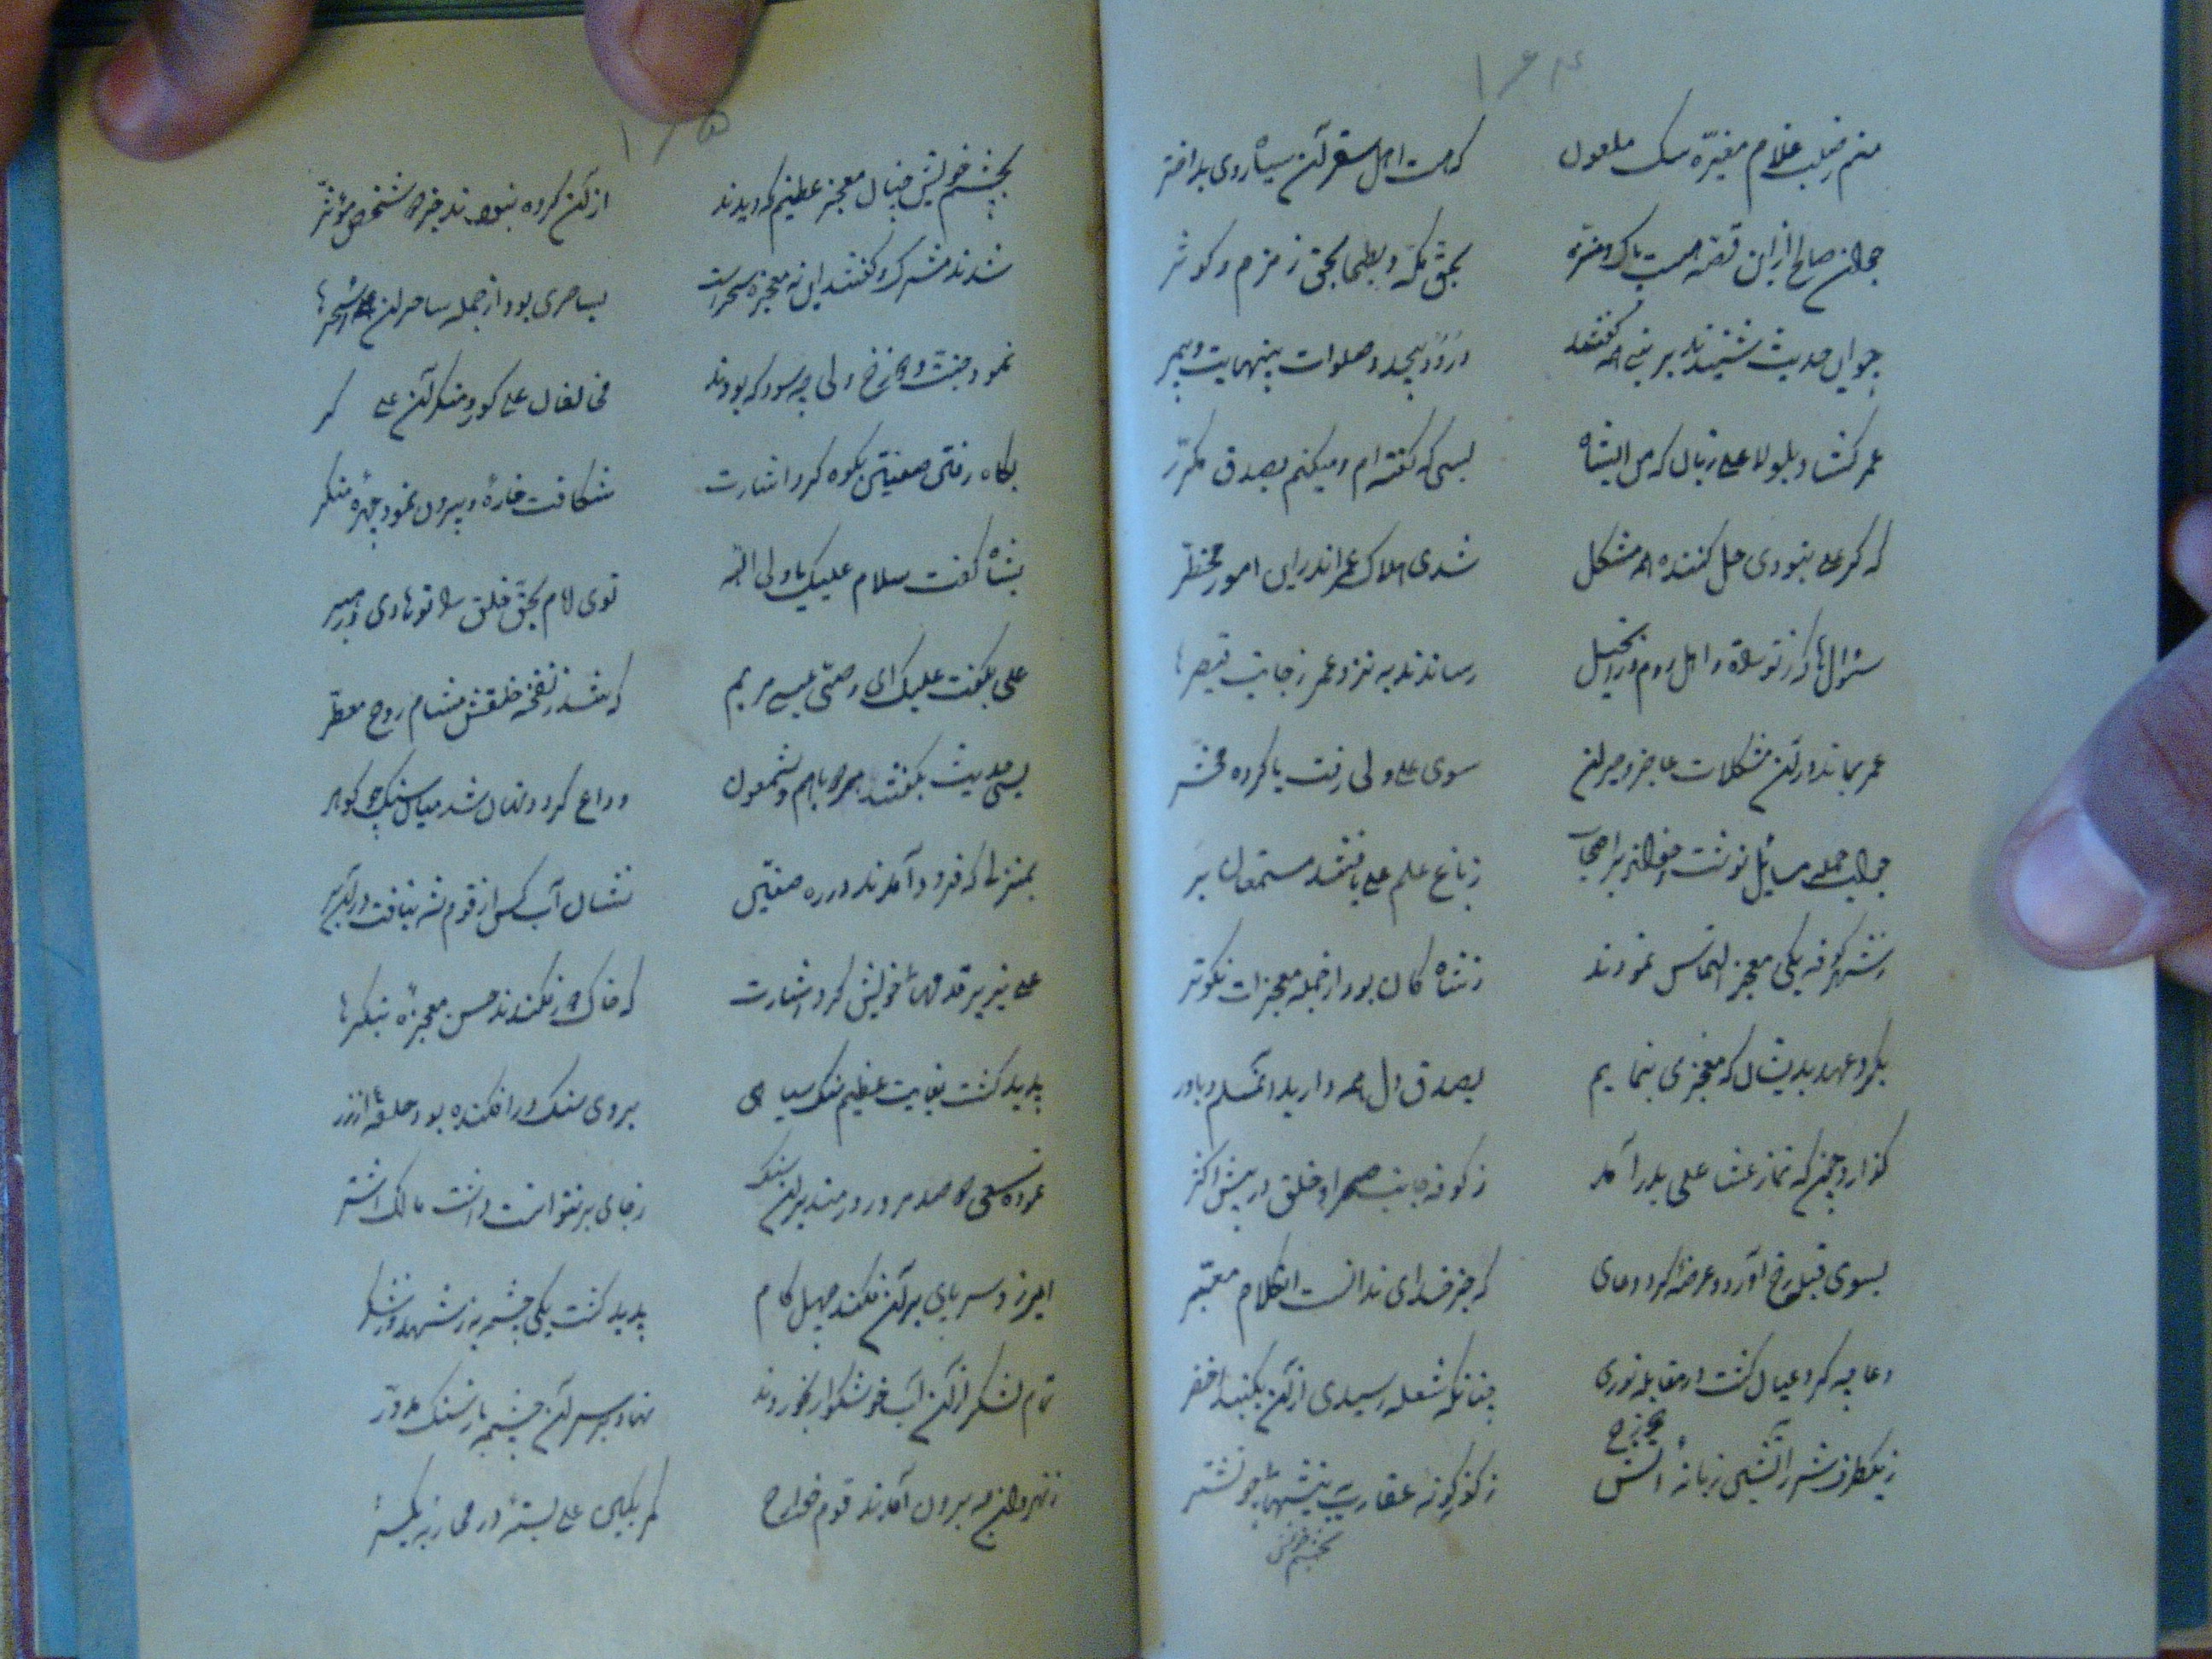 ۱۶۴
منم رضلب غلام مغیره سک ملعون که هست اهل سقر آن سیاه روی بد اختر
جوان صالح ازین قصه هست پاک و منزه بحق مکه و بطحا بحق زمزم و کوثر
چو این حدیث شنیدند بر نبی همه گفتند درود بیحد و صلوات بینهایت و بیمر
عمر گشاد بلولا علی زبان که من اینشاه بسی که گفته ام و میکنم بصدق مکرر
که گر علی نبودی حل کننده همه مشکل شدی هلاک عمر اندر این امور مخطر
سئوال ها که ز توراة و اهل روم و ز انجیل رساندند به نزد عمر ز جانب قیصر
عمر بماند در آن مشکلات عاجز و حیران سوی علی ولی رفت با کروه محشر
جواب جمله مسایل نوشت و خواند بر اصحاب ز باغ علم علی یافتند مستمعان بر
ز شهر کوفه یکی معجز التماس نمودند ز شاه کان بود از جمله معجزات نکوتر
بکرد عهد بدیشان که معجزی بنمایم بصدق دل همه دارید از مسلم و باور
گذارد چونکه نماز عشا علی بدر آمد ز کوفه جانب صحرا و خلق در پیش اکثر
بسوی قبله رخ آورد و عرضه کرد دعای که جز خدای ندانست آن کلام معتبر
دعا چه کرد عیان گشت در مقابله نوری چنانکه شعله رسیدی از آن بکنبد اخضر
دوزخ
ز یکطرف شرر آتشین زبانهٔ آتش ز گونه گونه عقارب نیشهای چو نشتر
بچشم خویش
۱۶۵
بچشم خویش چنان معجز عظیم که دیدند از آن کروه نبودند جز دو شخص موثر
شدند مشرک و گفتند این نه معجزه سحر است بساحری بود از جمله ساحران اسحر
نمود جنت و دوزخ ولی چه سود که بودند مخالفان علی کور و منکر آن علی کر
بگاه رفتن صفین بکوه کرد اشارت شکافت خاره و بیرون نمود چهره منکر
بشاه گفت سلام علیک یا ولی الله توی امام بحق خلق را تو هادی و رهبر
علی بگفت علیک ای وصی عیسی مریم که شد ز نفخه خلقش مشام روح معطر
بسی حدیث بگفتند هر دو باهم و شمعون وداع کرد و نهان شد میان سنگ چو گوهر
بمنزلی که فرود آمدند در ره صفین نشان آب کس از قوم شه نیافت در آن بر
علی بزیر قدمهای خویش کرد اشارت که خاک دور فکندند حسن معجزه بنگر
پدید گشت بغایت عظیم سنگ سیاهی بروی سنگ در افکنده بود حلقهٔ از زر
نموده سعی دو صد مرد زورمند بر آن سنگ ز جای بر نتوانست داشت مالک اشتر
امیر زد سر پای بر آن فکند چهل کام پدید گشت یکی چشمه به ز شهد و ز شکر
تمام لشکر از آن آب خوشگوار بخوردند نهاد بر سر آن چشمه باز سنگ مدور
ز نهروان چه برون آمدند قوم خوارج کمر بکین علی بسته در محاربه یکسر